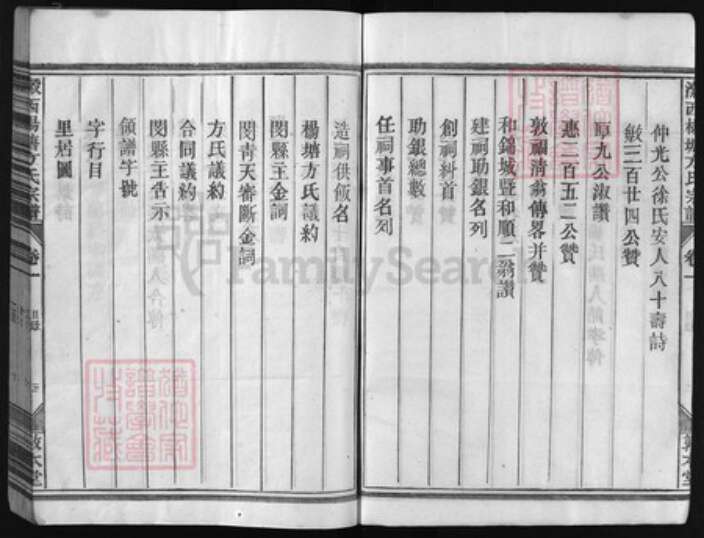 仲光公徐氏安人八十壽詩
敏三百廿四公贊
厚九公淑讚
惠三百五二公贊
敦禰清翁傳畧并贊
和錦城暨和順二翁讚
建祠助銀名列
創祠糾首
助銀總數
任祠事首名列
造祠供飯名
楊塘方氏議約
閔縣王金詞
閔青天審斷金詞
方氏議約
合同議約
閔縣王告示
領譜字號
字行目
里居圖
楊塘方氏宗譜
卷一
敦本堂
FamilySearch